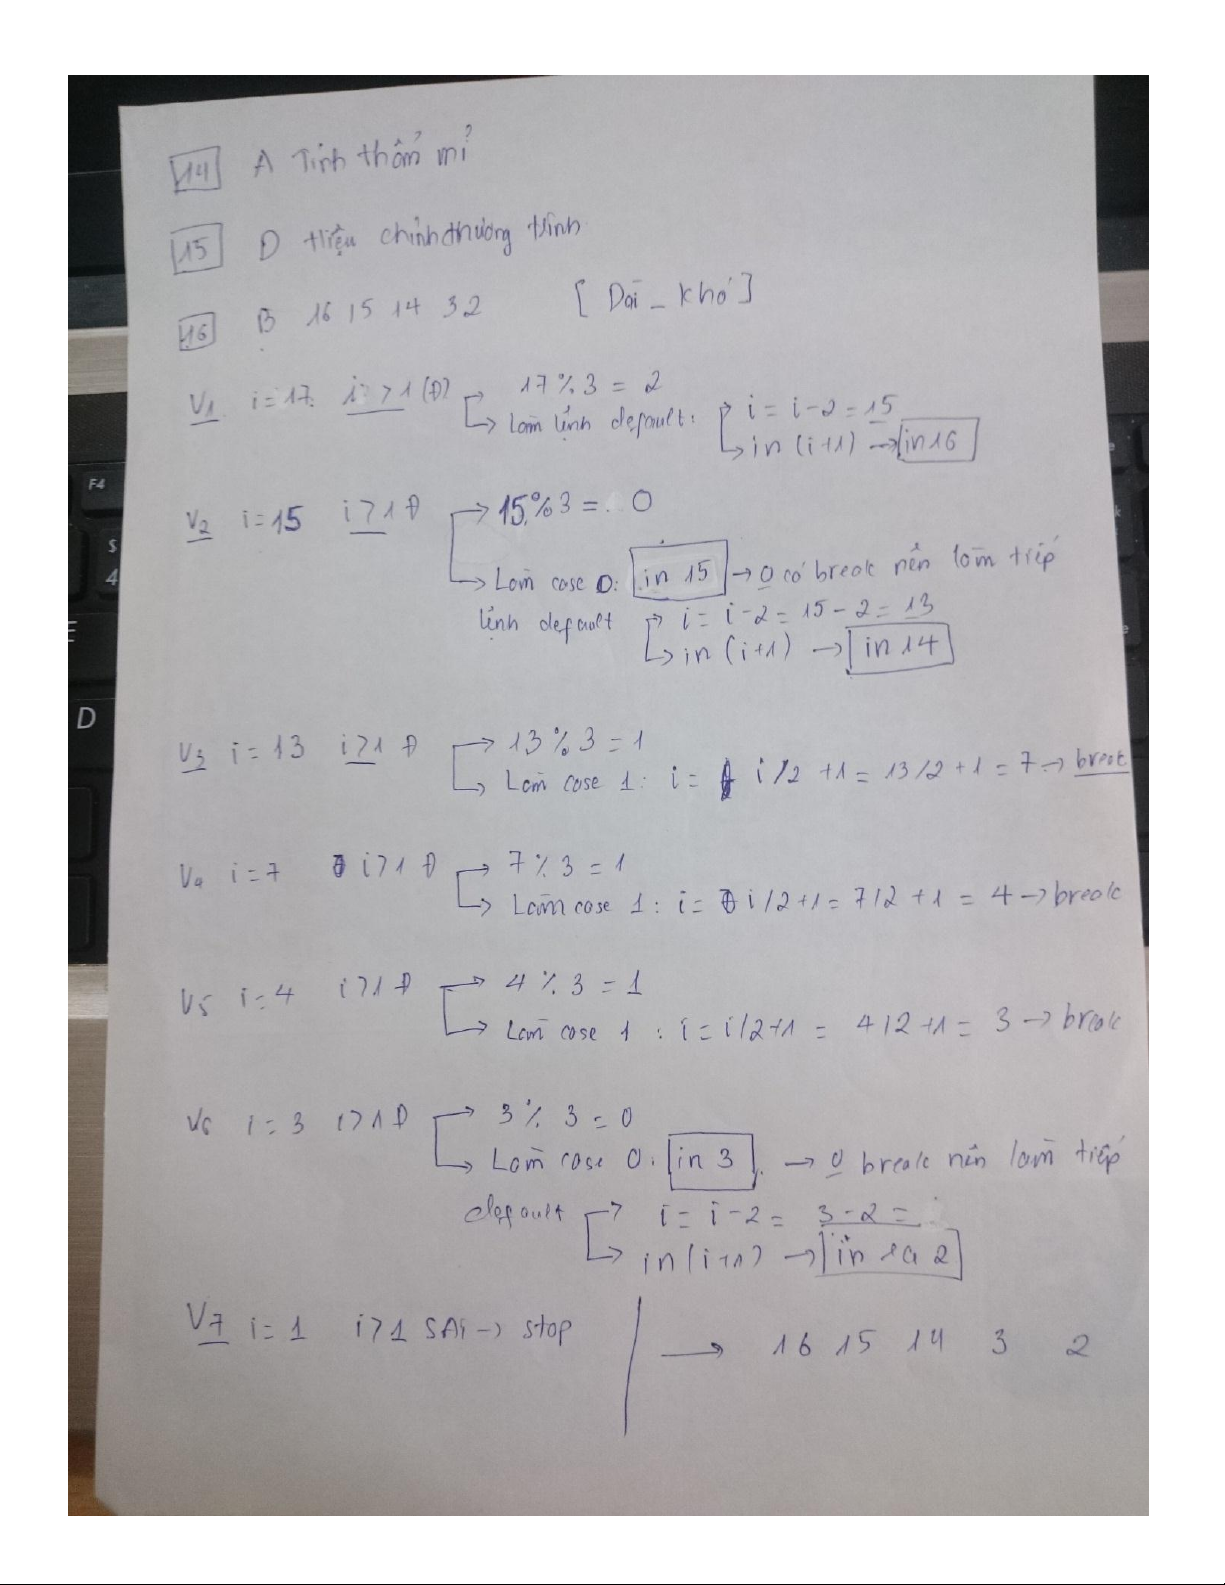 14 A Tính thẩm mỉ
15 D Hiệu chỉnh chương trình
16 B 16 15 14 3 2 [ Dài _ khó ]
V1 i = 17 i > 1 (Đ) 17 % 3 = 2
Làm lệnh default: i = i - 2 = 15
in (i+1) → in 16
V2 i = 15 i > 1 Đ → 15 % 3 = 0
→ Làm case 0: in 15 → 0 có break nên làm tiếp
lệnh default i = i - 2 = 15 - 2 = 13
in (i+1) → in 14
V3 i = 13 i > 1 Đ → 13 % 3 = 1
→ Làm case 1: i = i / 2 + 1 = 13 / 2 + 1 = 7 → break
V4 i = 7 i > 1 Đ → 7 % 3 = 1
→ Làm case 1: i = i / 2 + 1 = 7 / 2 + 1 = 4 → break
V5 i = 4 i > 1 Đ → 4 % 3 = 1
→ Làm case 1 : i = i / 2 + 1 = 4 / 2 + 1 = 3 → break
V6 i = 3 i > 1 Đ → 3 % 3 = 0
→ Làm case 0: in 3 → 0 break nên làm tiếp
default → i = i - 2 = 3 - 2 =
→ in (i+1) → in ra 2
V7 i = 1 i > 1 SAi → stop
→ 16 15 14 3 2
F4
$
4
E
D